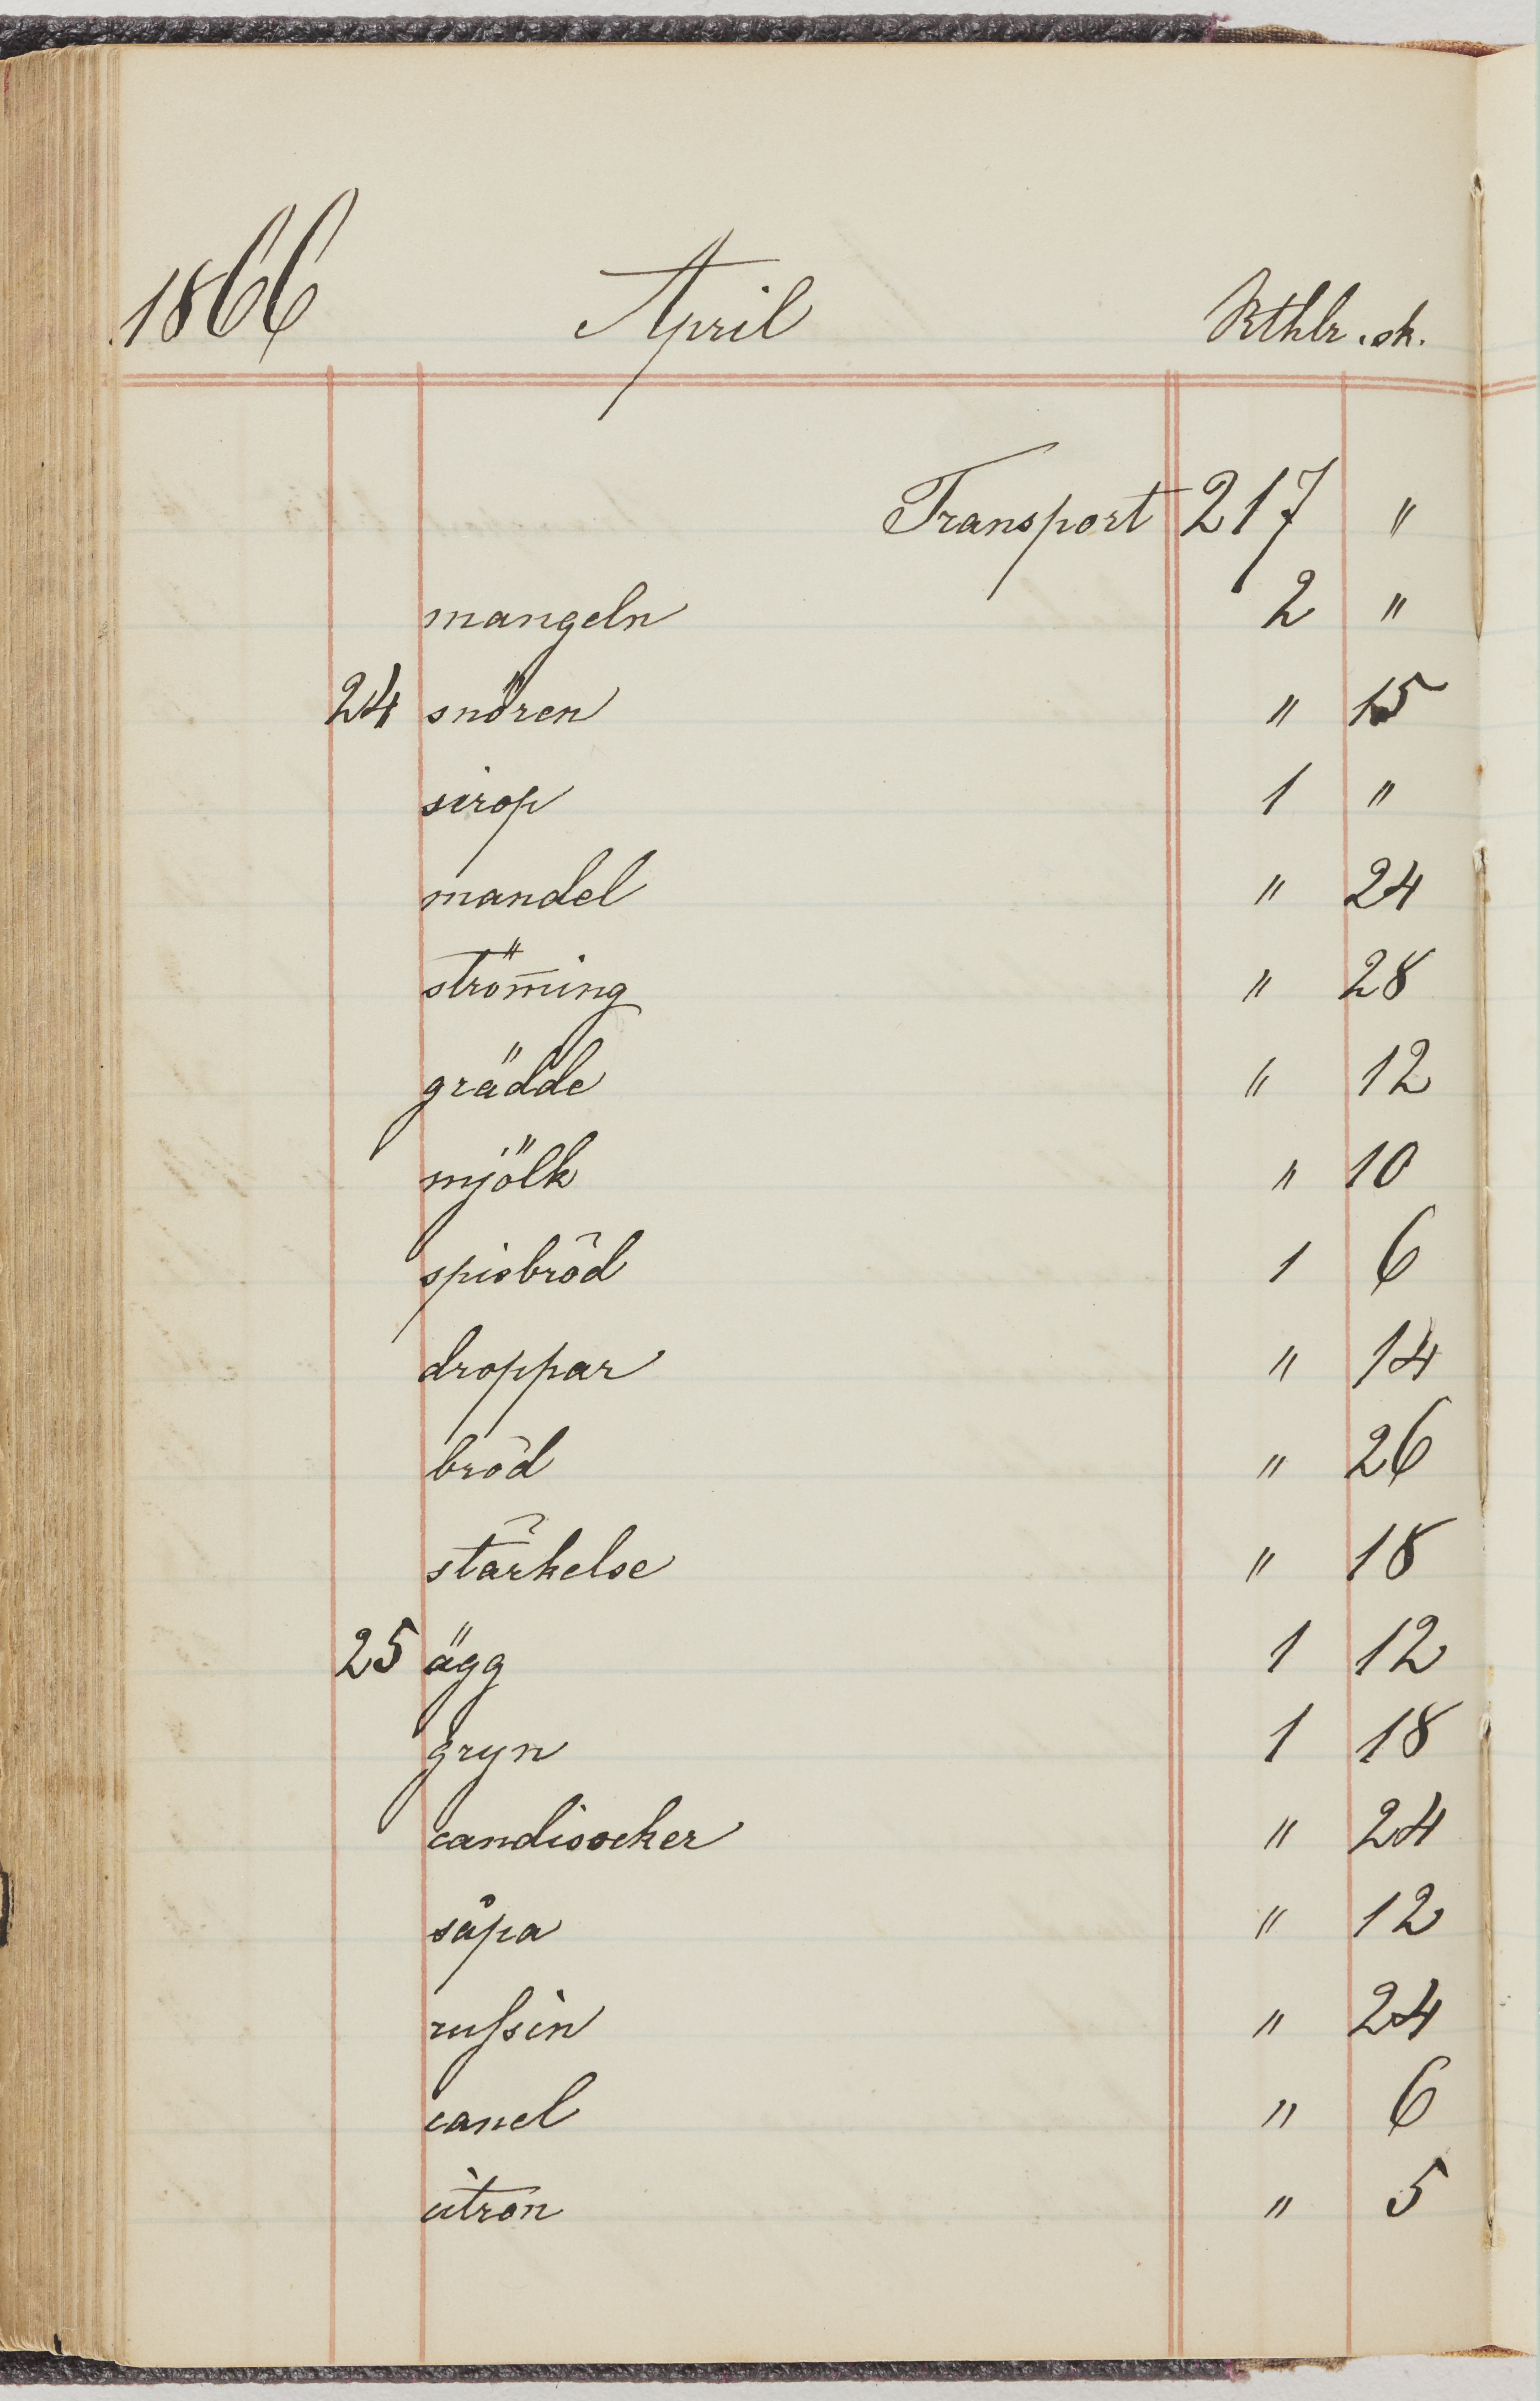 1866 April Rthlr. sk.
Transport 217 "
mangeln 2 "
24 snören " 15
sirop 1 "
mandel " 24
strömīng " 28
grädde " 12
mjölk " 10
spisbröd 1 6
droppar " 14
bröd " 26
stärkelse " 18
25 ägg 1 12
gryn 1 18
candisocker " 24
såpa " 12
russin " 24
canel " 6
citron " 5